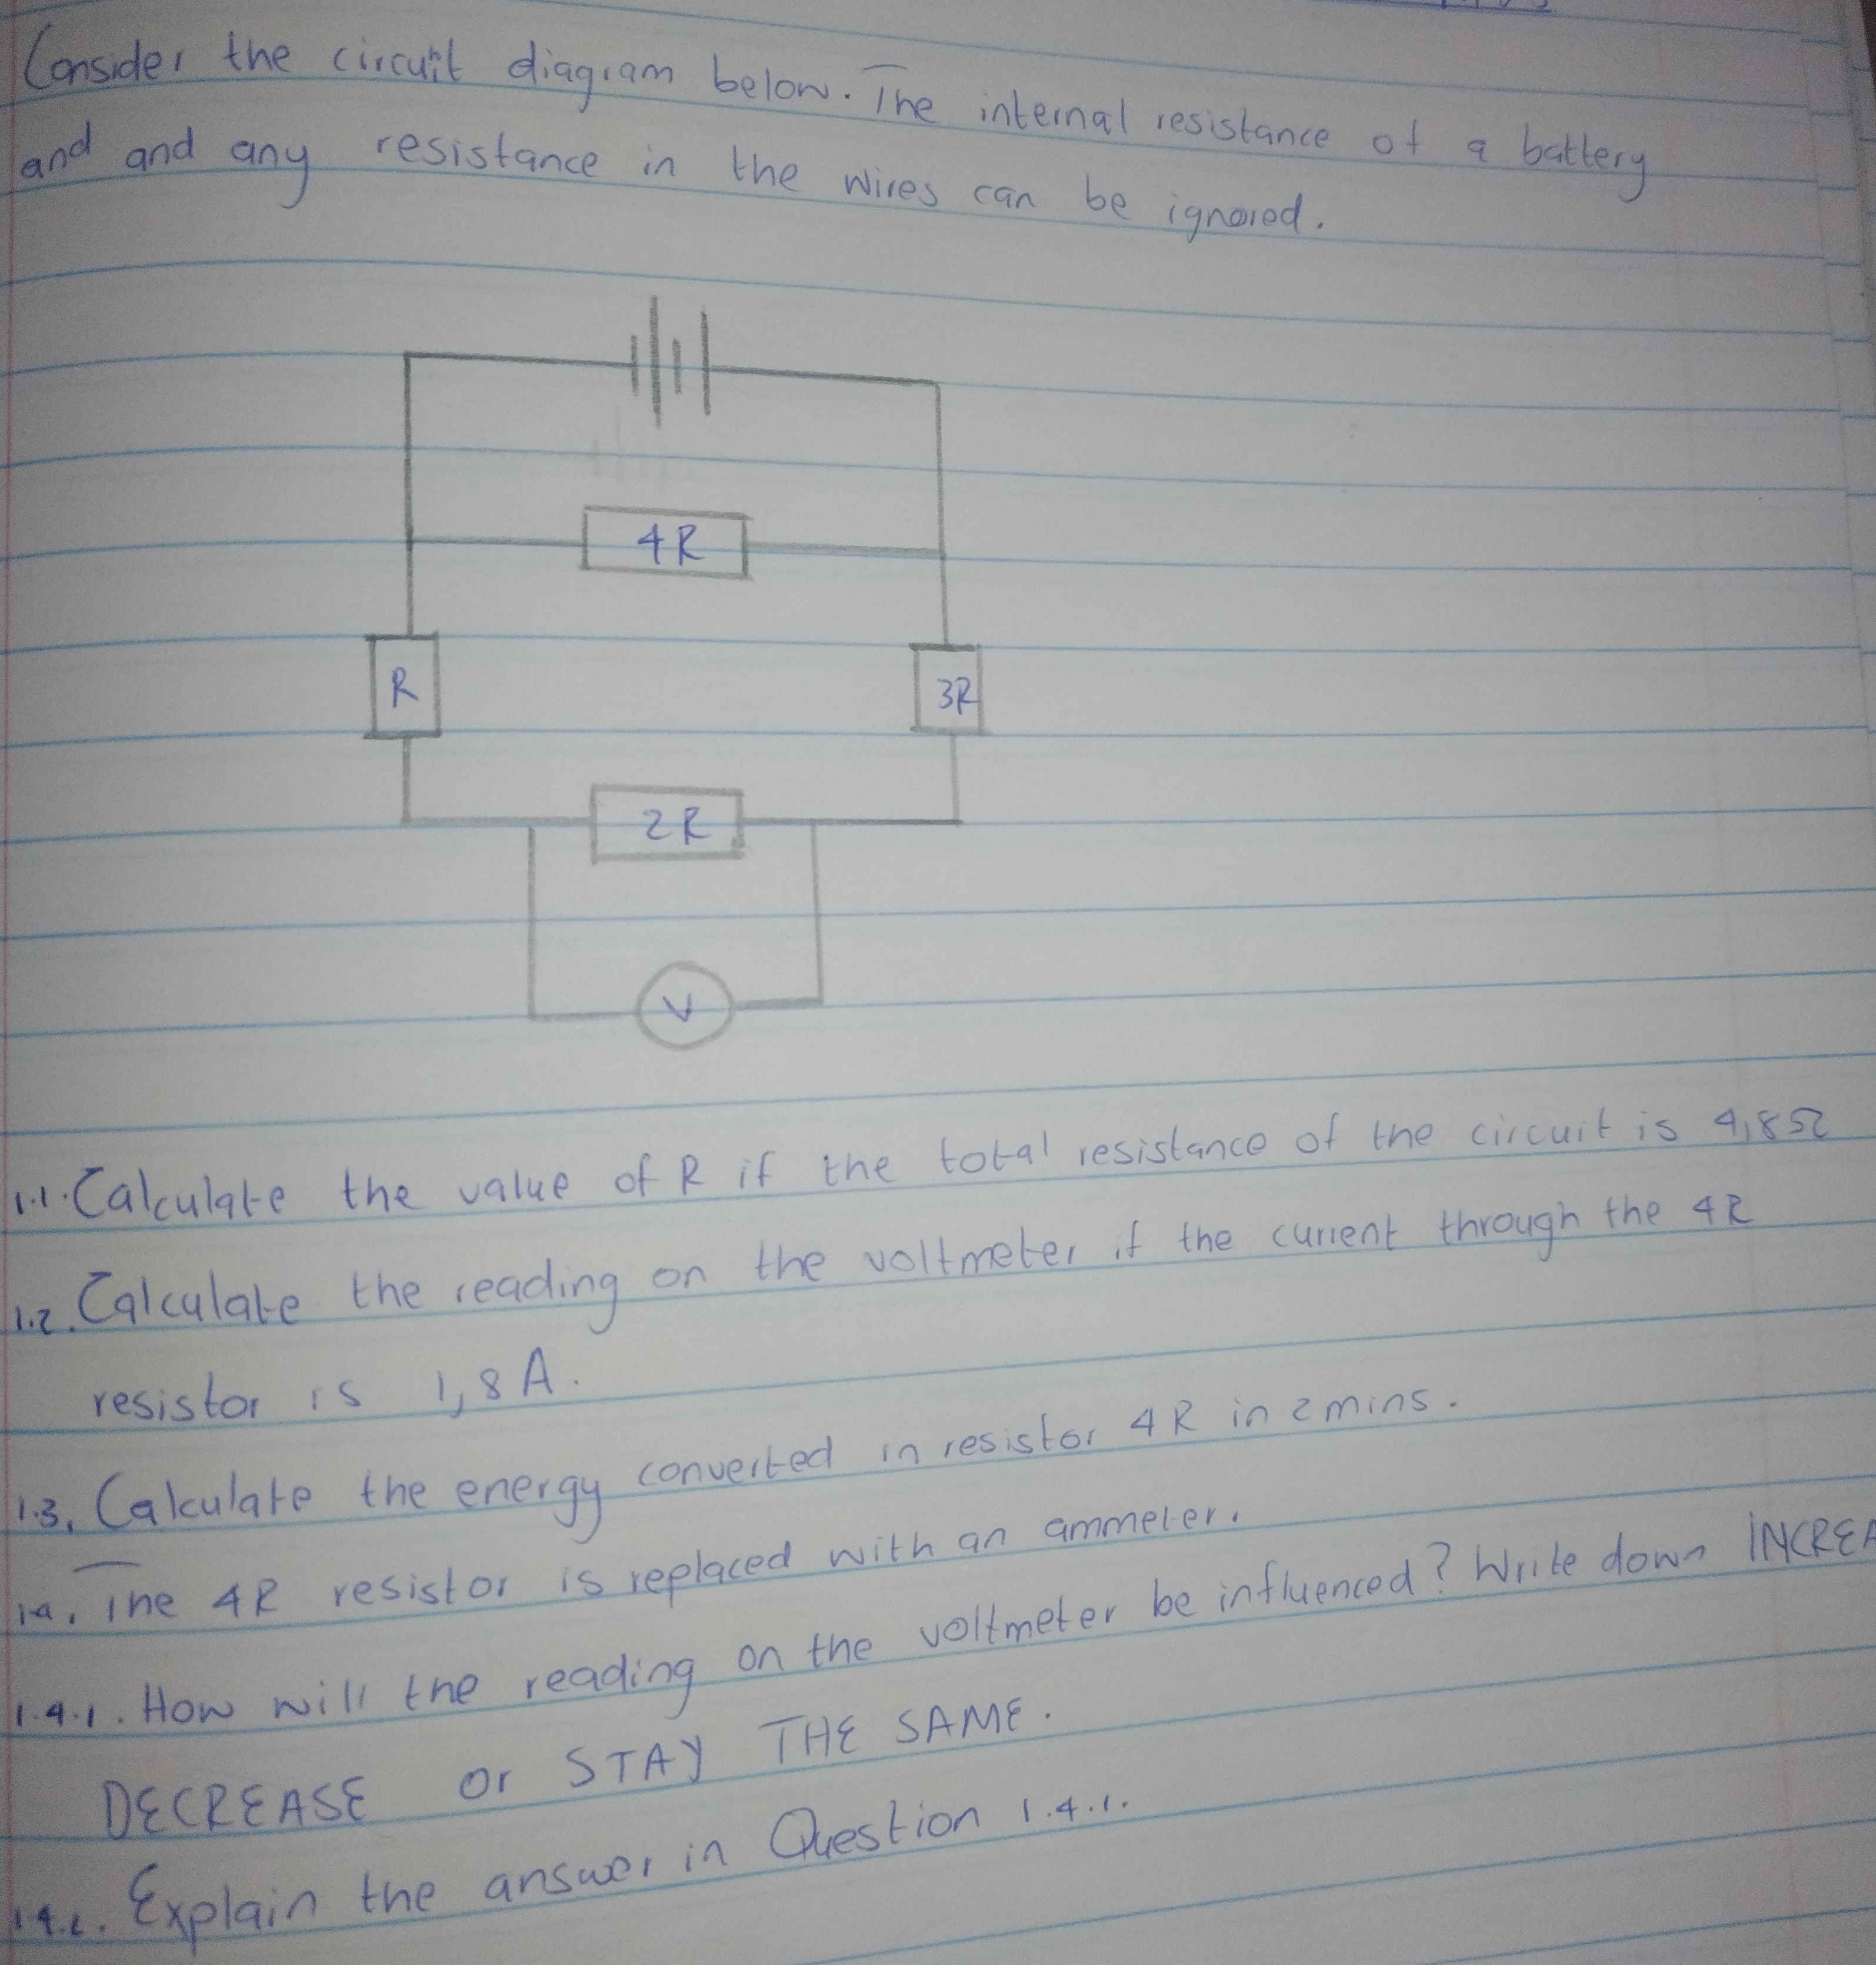 Consider the circuit diagram below. The internal resistance of a battery
and and any resistance in the wires can be ignored.
4R
R
3R
2R
V
1.1. Calculate the value of R if the total resistance of the circuit is 4,8Ω
1.2. Calculate the reading on the voltmeter if the current through the 4R
resistor is 1,8 A.
1.3. Calculate the energy converted in resistor 4R in 2 mins.
1.4. The 4R resistor is replaced with an ammeter.
1.4.1. How will the reading on the voltmeter be influenced? Write down INCREA
DECREASE or STAY THE SAME.
1.4.2. Explain the answer in Question 1.4.1.